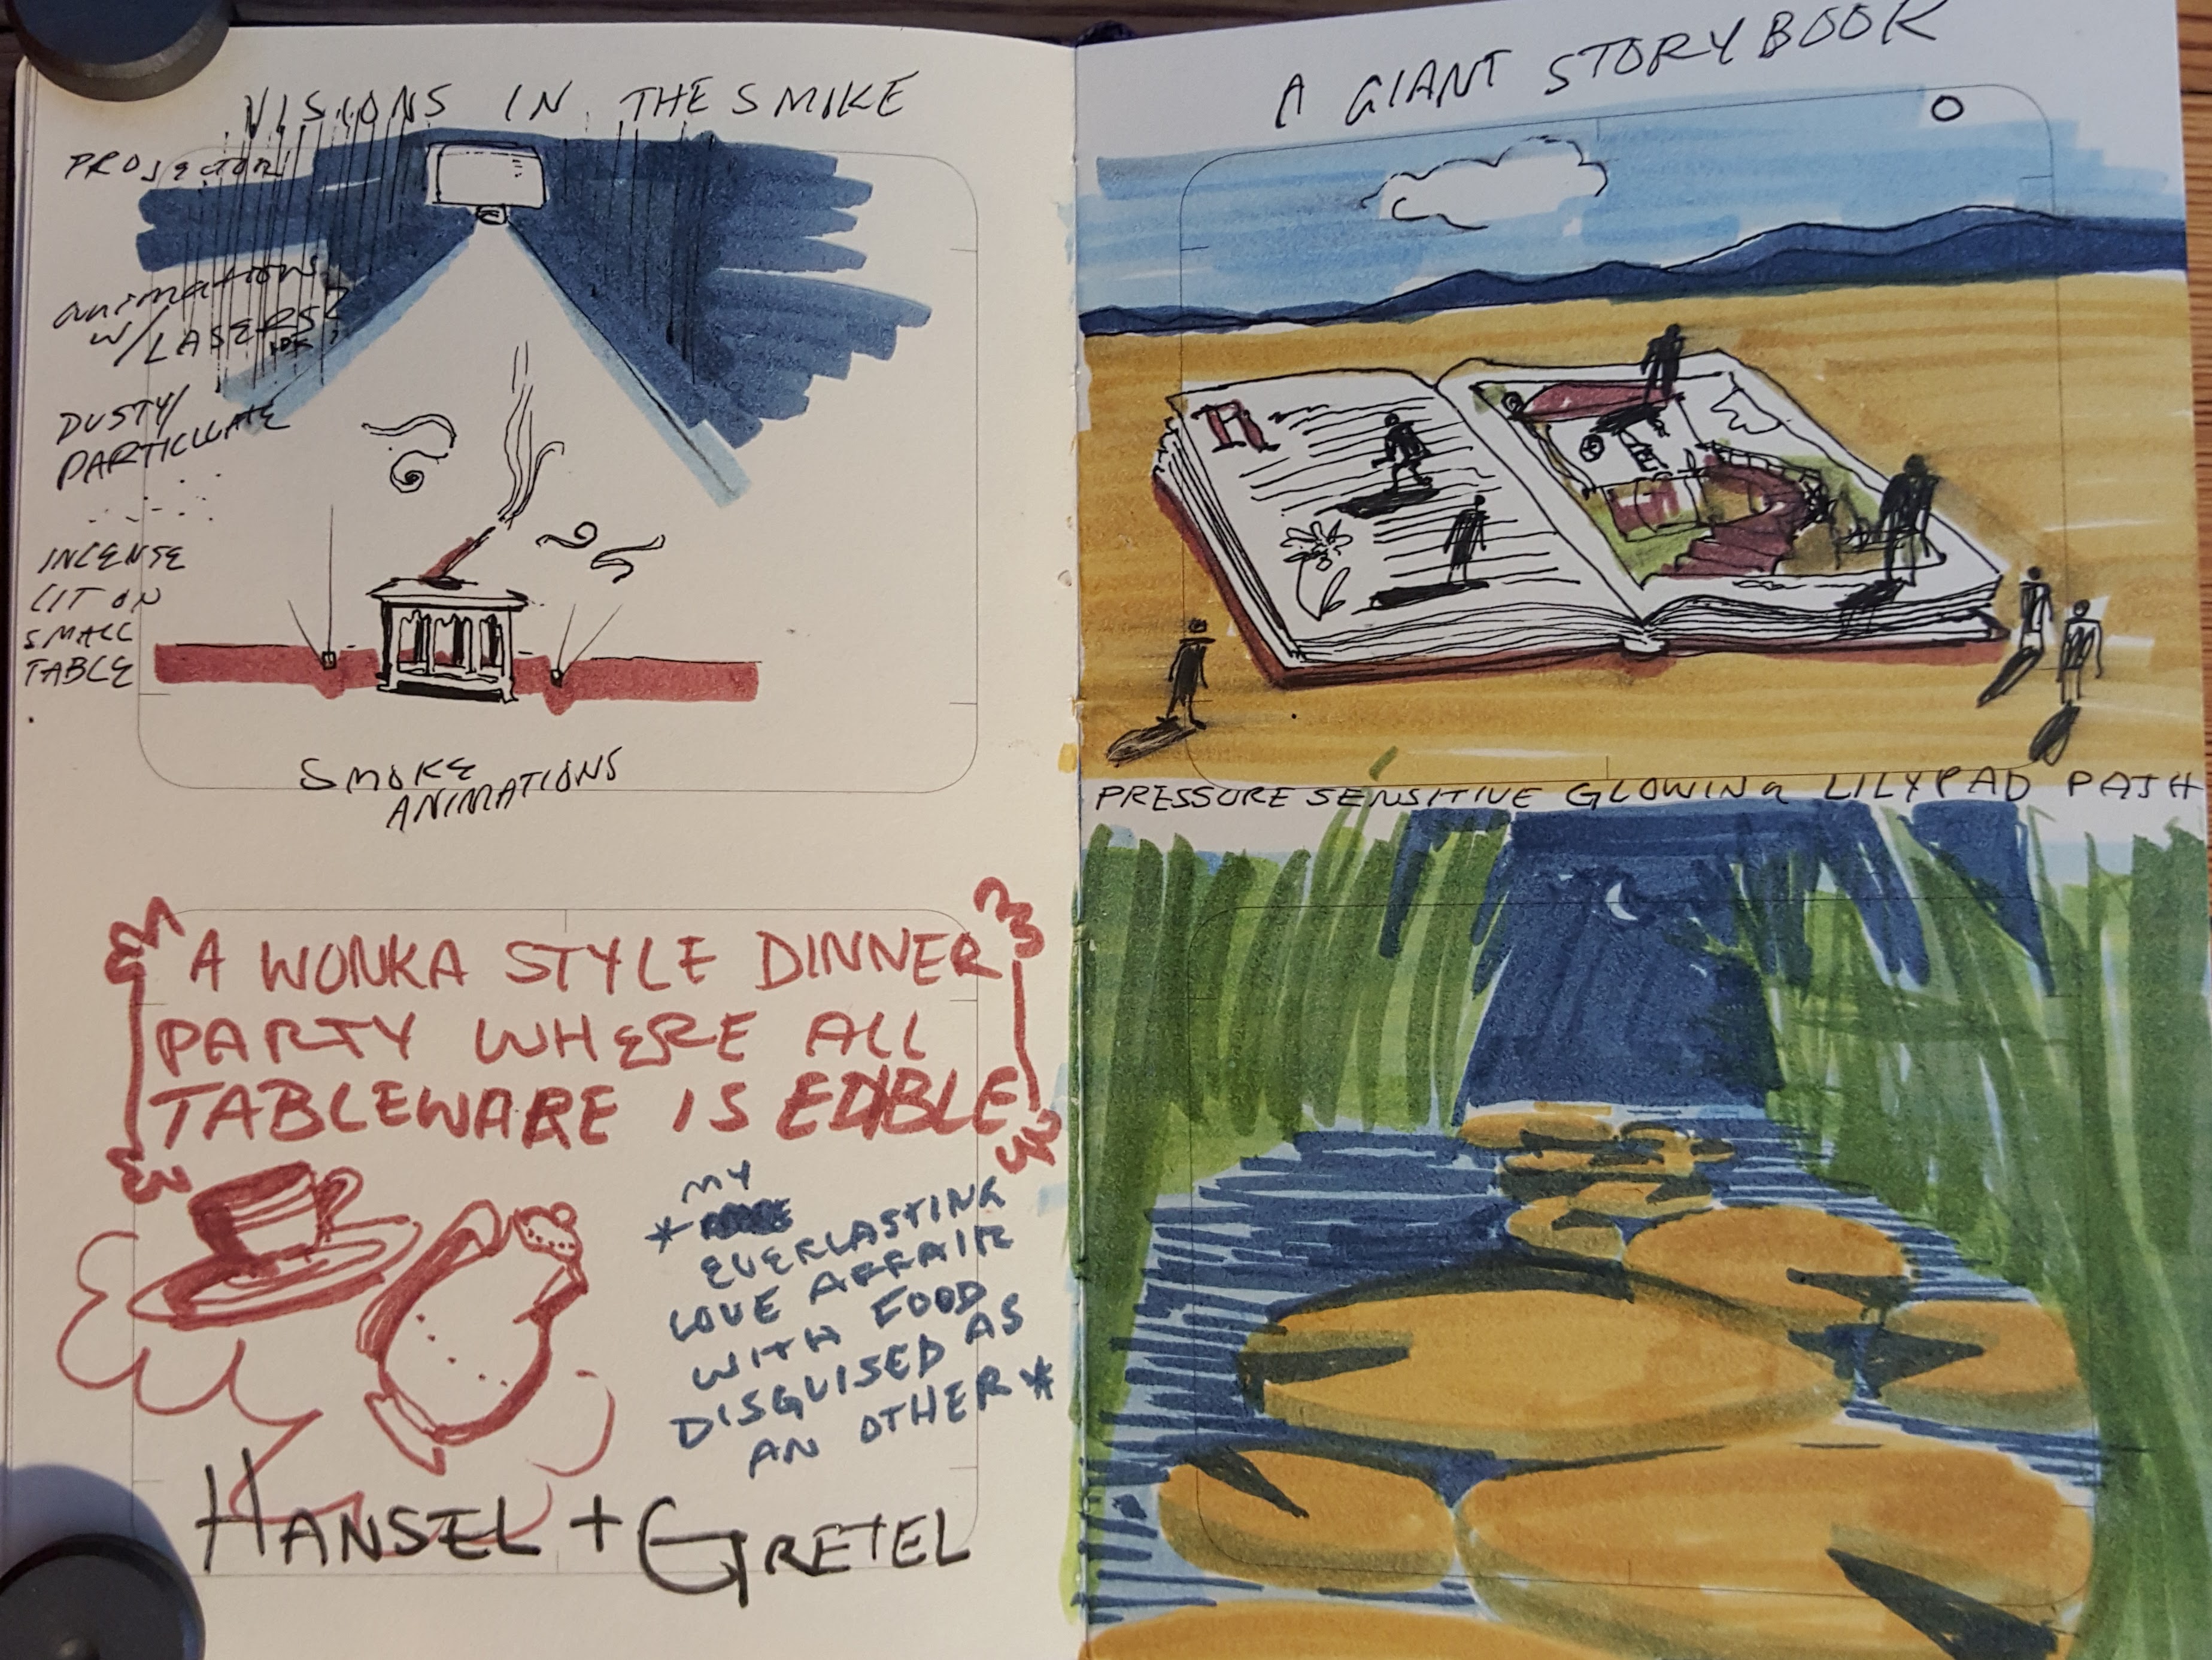 VISIONS IN THE SMIKE
PROJECTOR
animations
w/LASERS?
IDK?
DUSTY/
PARTICULATE
INCENSE
LIT ON
SMALL
TABLE
SMOKE
ANIMATIONS
A WONKA STYLE DINNER
PARTY WHERE ALL
TABLEWARE IS EDIBLE
MY
*
EVERLASTING
LOVE AFFAIR
WITH FOOD
DISGUISED AS
AN OTHER*
HANSEL + GRETEL
A GIANT STORYBOOK
PRESSURE SENSITIVE GLOWING LILYPAD PATH